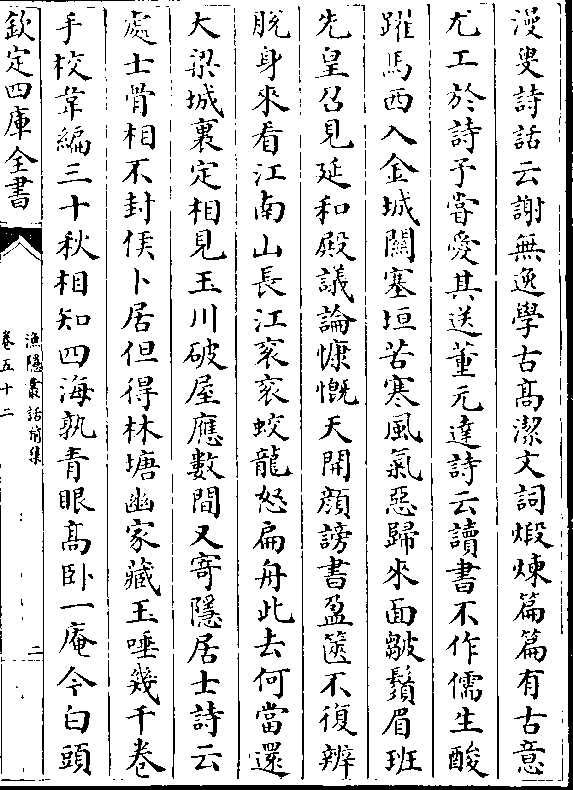 漫叟詩話云謝無逸學古髙潔文詞煅煉篇篇有古意
尤工於詩予嘗愛其送董元達詩云讀書不作儒生酸
躍馬西入金城闗塞垣苦寒風氣惡歸來面皺鬚眉班
先皇召見延和殿議論慷慨天開顔謗書盈篋不復辨
脫身來看江南山長江衮衮蛟龍怒扁舟此去何當還
大梁城裏定相見玉川破屋應數間又寄隱居士詩云
處士骨相不封侯卜居但得林塘幽家藏玉唾幾千卷
手校韋編三十秋相知四海孰青眼髙卧一庵今白頭
欽定四庫全書
漁隱叢話前集
卷五十二
二